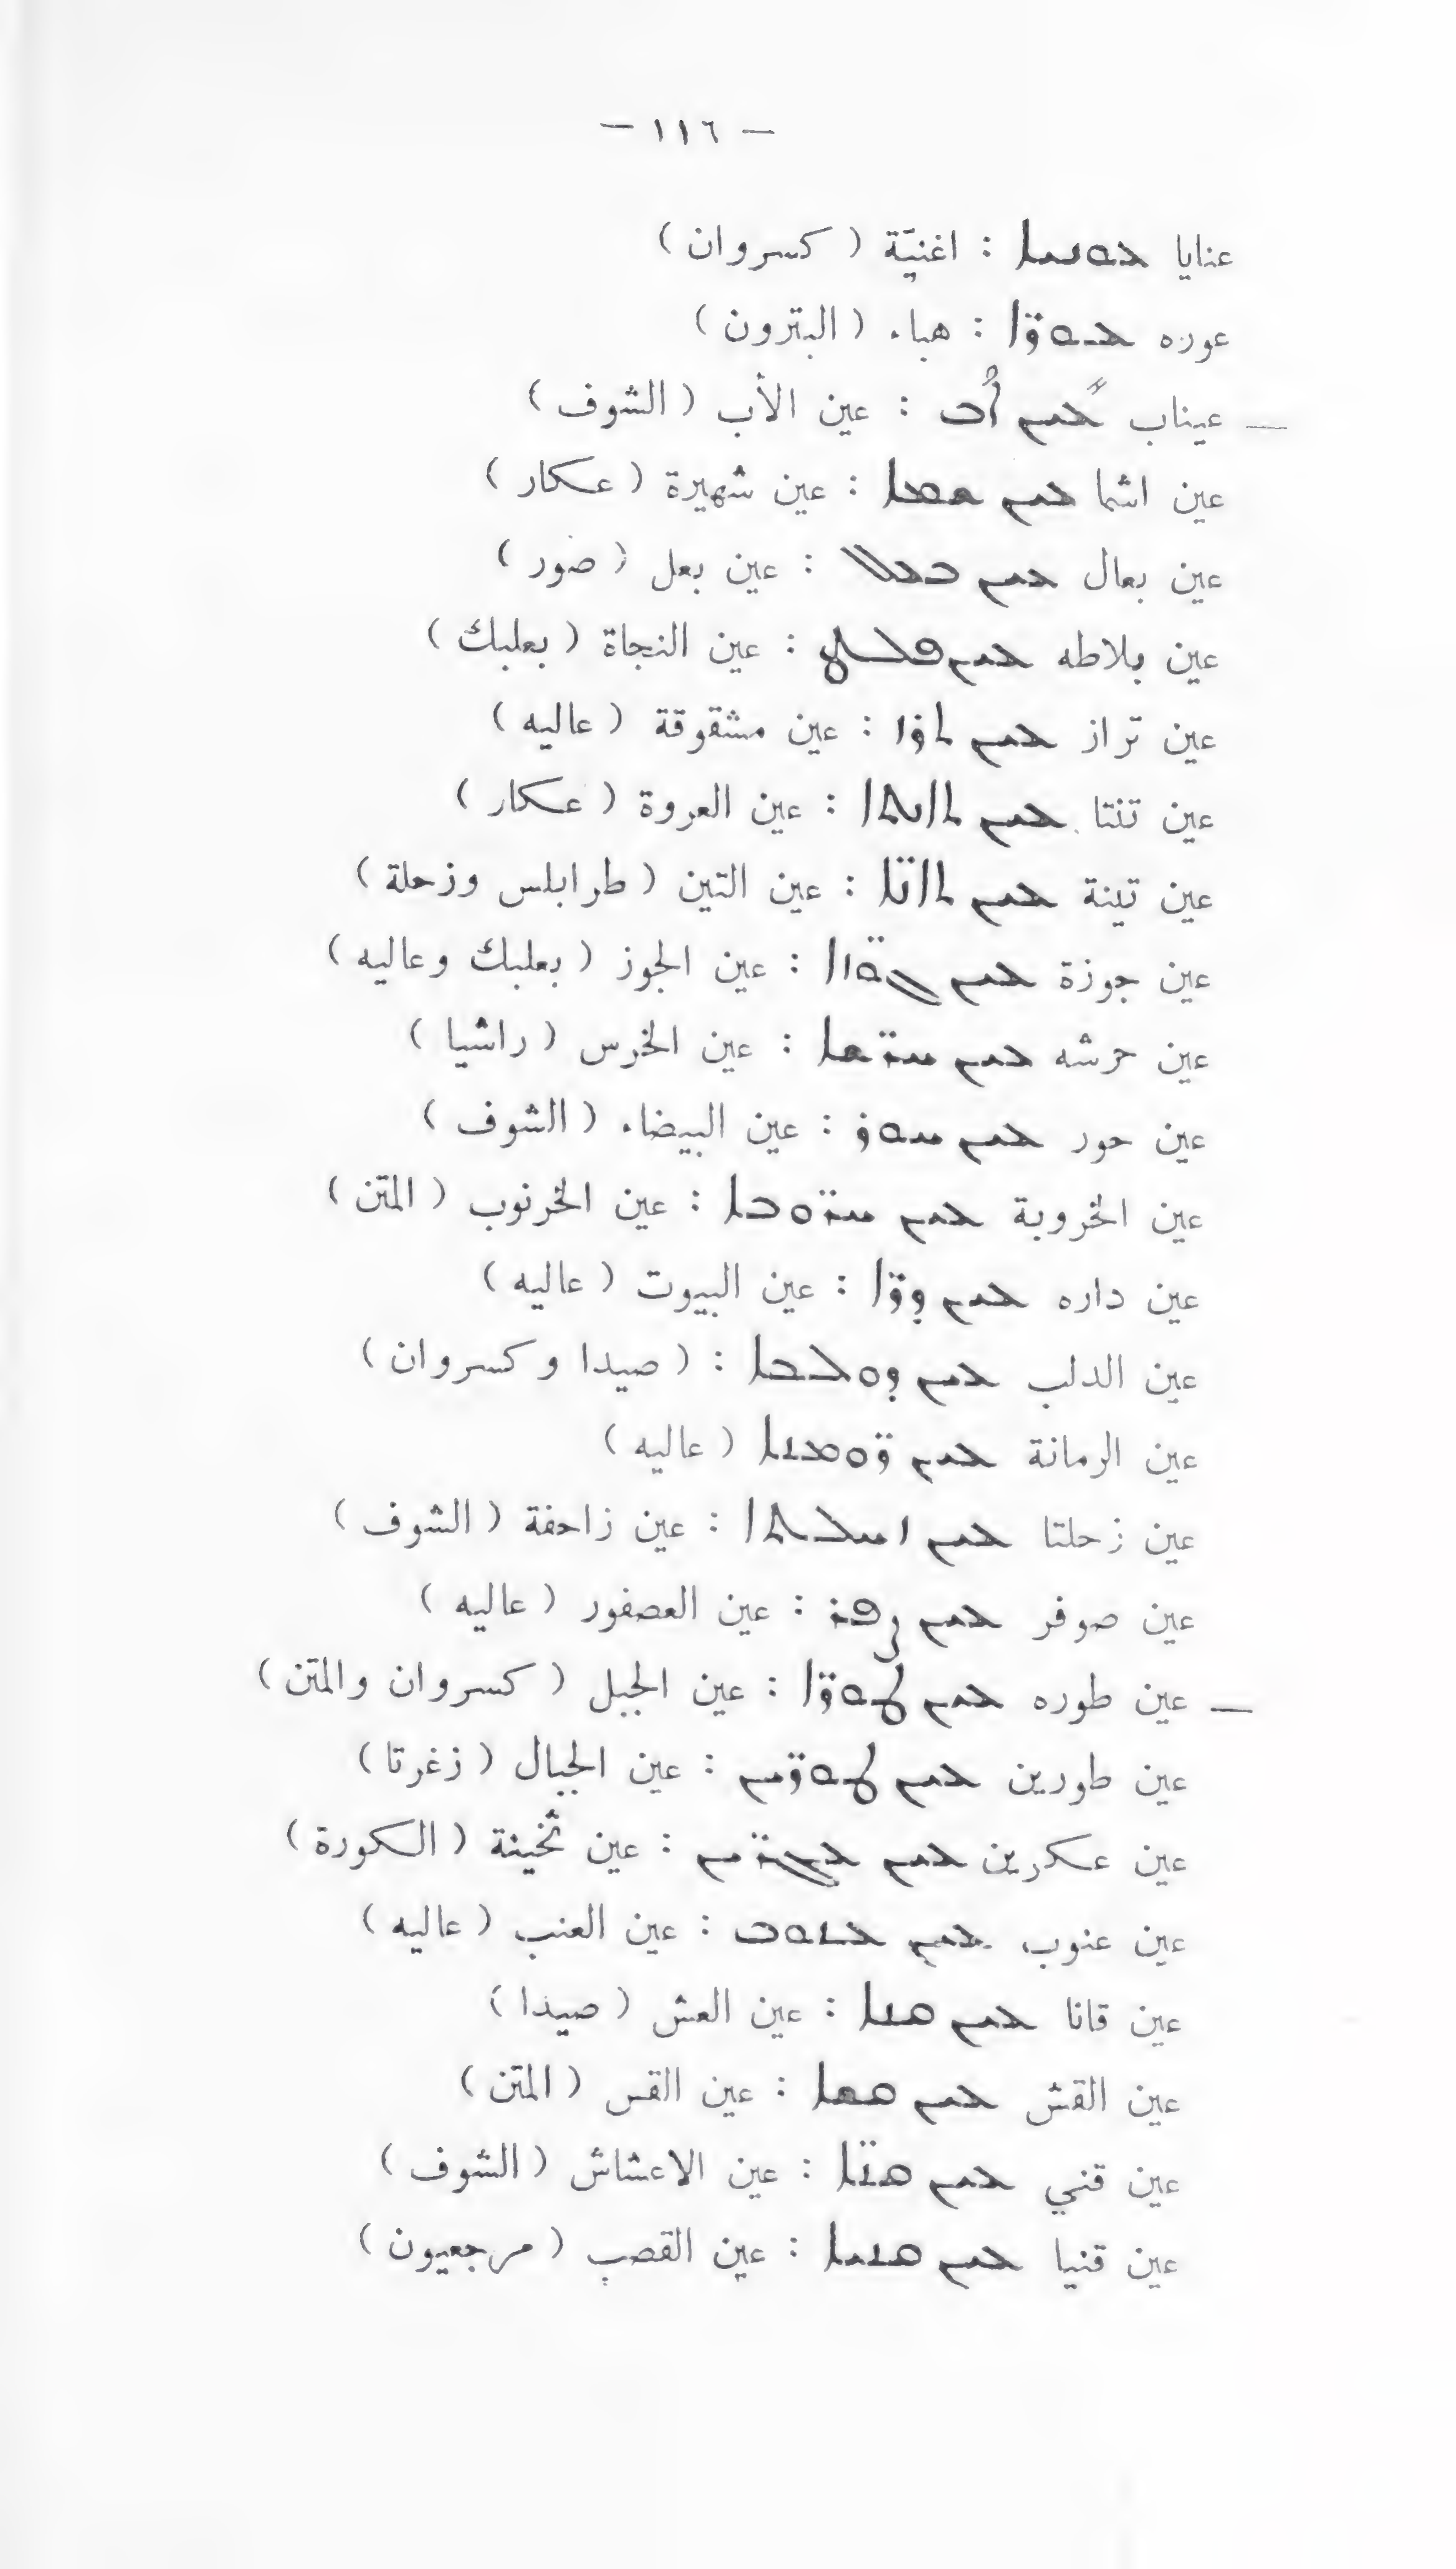 — ١١٦ —
عنايا ܥܘܢܝܐ : اغنيّة ( كسروان )
عوره ܥܘܪ̈ܐ : هباء ( البترون )
— عيناب ܥܝܢ ܐܒ : عين الأب ( الشوف )
عين اشما ܥܝܢ ܫܡܐ : عين شهيرة ( عكار )
عين بعال ܥܝܢ ܒܥܠ : عين بعل ( صور )
عين بلاطه ܥܝܢ ܦܠܛ : عين النجاة ( بعلبك )
عين تراز ܥܝܢ ܬܪܙ : عين مشقوقة ( عاليه )
عين تنتا ܥܝܢ ܬܐܢܬܐ : عين العروة ( عكار )
عين تينة ܥܝܢ ܬܐܢ̈ܐ : عين التين ( طرابلس وزحلة )
عين جوزة ܥܝܢ ܓܘ̈ܙܐ : عين الجوز ( بعلبك وعاليه )
عين حرشه ܥܝܢ ܚܪ̈ܫܐ : عين الخرس ( راشيا )
عين حور ܥܝܢ ܚܘܪ : عين البيضاء ( الشوف )
عين الخروبة ܥܝܢ ܚܪ̈ܘܒܐ : عين الخرنوب ( المتن )
عين داره ܥܝܢ ܕܪ̈ܐ : عين البيوت ( عاليه )
عين الدلب ܥܝܢ ܕܘܠܒܐ : ( صيدا وكسروان )
عين الرمانة ܥܝܢ ܪ̈ܘܡܢܐ ( عاليه )
عين زحلتا ܥܝܢ ܙܚܠܬܐ : عين زاحفة ( الشوف )
عين صوفر ܥܝܢ ܨܦܪ : عين العصفور ( عاليه )
— عين طوره ܥܝܢ ܛܘܪ̈ܐ : عين الجبل ( كسروان والمتن )
عين طورين ܥܝܢ ܛܘܪ̈ܝܢ : عين الجبال ( زغرتا )
عين عكرين ܥܝܢ ܥܓܪ̈ܝܢ : عين ثخينة ( الكورة )
عين عنوب ܥܝܢ ܥܢܘܒ : عين العنب ( عاليه )
عين قانا ܥܝܢ ܩܢܐ : عين العش ( صيدا )
عين القش ܥܝܢ ܩܫܐ : عين القس ( المتن )
عين قني ܥܝܢ ܩܢ̈ܐ : عين الاعشاش ( الشوف )
عين قنيا ܥܝܢ ܩܢܝܐ : عين القصب ( مرجعيون )